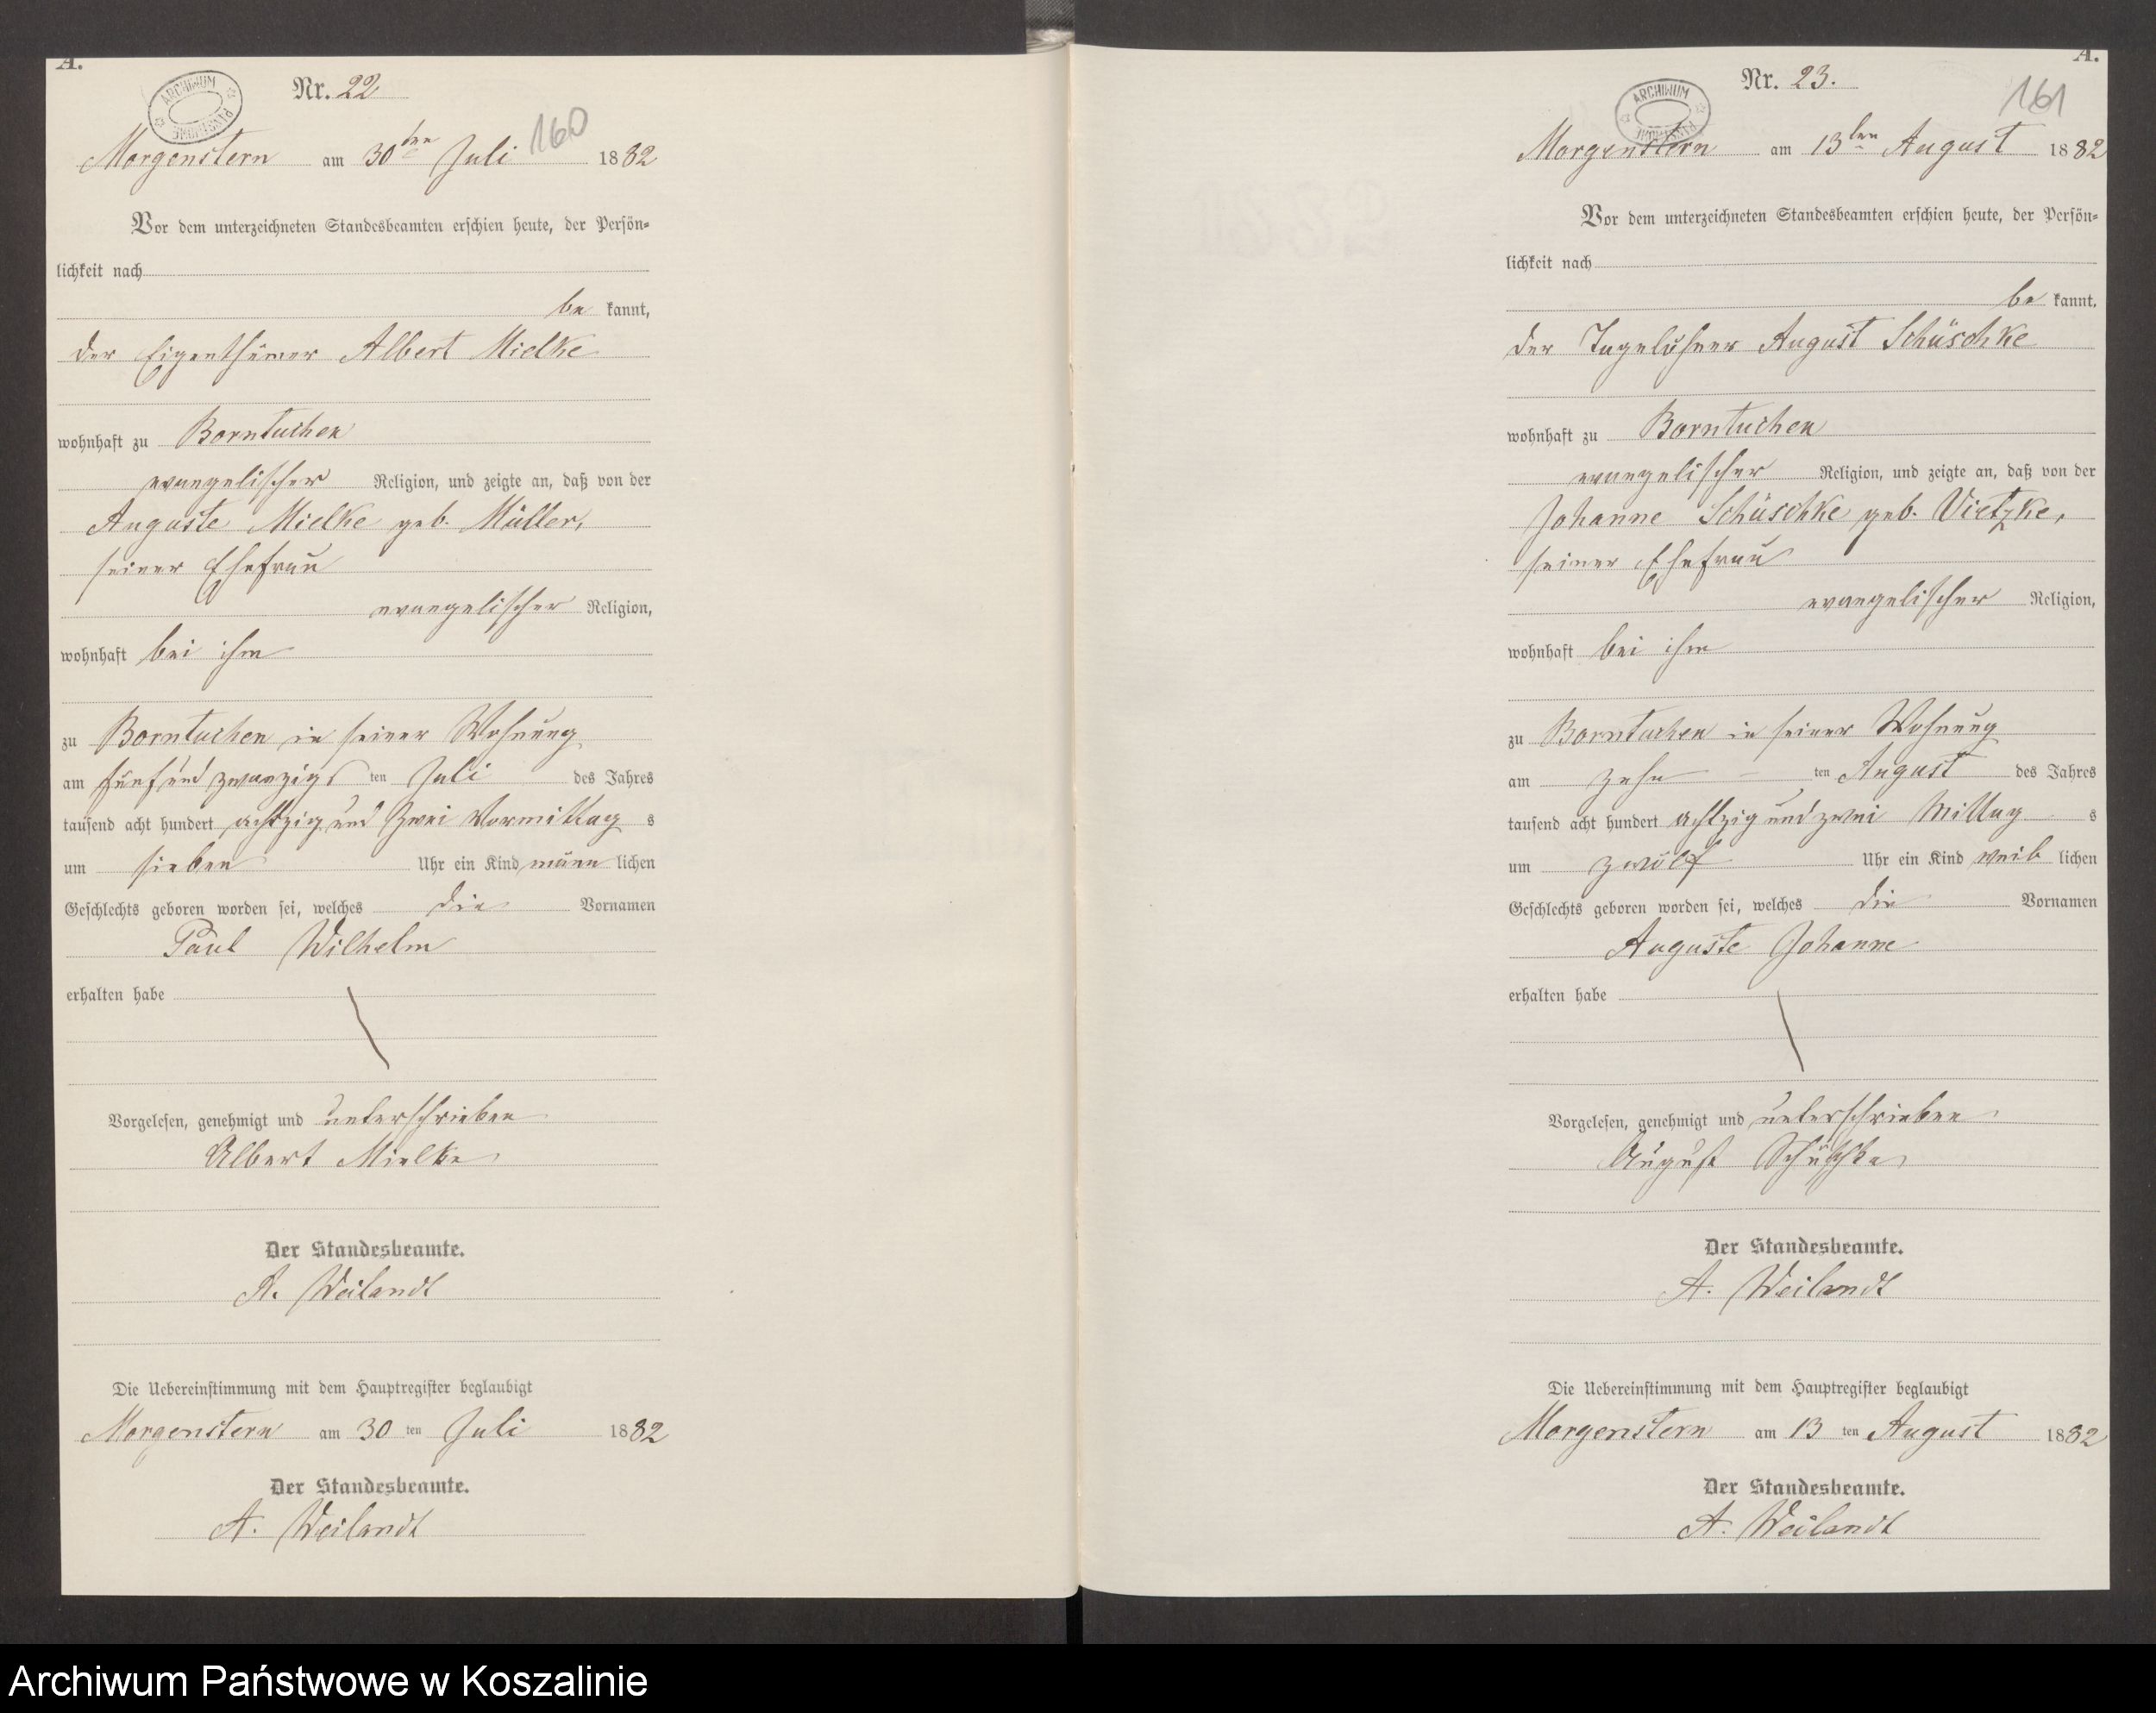 A.
ARCHIWUM PAŃSTWOWE
Nr. 22
160
Morgenstern am 30ten Juli 1882
Vor dem unterzeichneten Standesbeamten erschien heute, der Persön-
lichkeit nach
be kannt,
der Eigenthümer Albert Mielke
wohnhaft zu Borntuchen
evangelischer Religion, und zeigte an, daß von der
Auguste Mielke geb. Müller,
seiner Ehefrau
evangelischer Religion,
wohnhaft bei ihm
zu Borntuchen in seiner Wohnung
am fünfundzwanzigs ten Juli des Jahres
tausend acht hundert achtzig und zwei Vormittag s
um sieben Uhr ein Kind männ lichen
Geschlechts geboren worden sei, welches die Vornamen
Paul Wilhelm
erhalten habe
Vorgelesen, genehmigt und unterschrieben
Albert Mielke
Der Standesbeamte.
A. Weilandt
Die Uebereinstimmung mit dem Hauptregister beglaubigt
Morgenstern am 30 ten Juli 1882
Der Standesbeamte.
A. Weilandt
A.
ARCHIWUM PAŃSTWOWE
Nr. 23.
161
Morgenstern am 13ten August 1882
Vor dem unterzeichneten Standesbeamten erschien heute, der Persön-
lichkeit nach
be kannt,
der Tagelöhner August Schüschke
wohnhaft zu Borntuchen
evangelischer Religion, und zeigte an, daß von der
Johanne Schüschke geb. Vietzke,
seiner Ehefrau
evangelischer Religion,
wohnhaft bei ihm
zu Borntuchen in seiner Wohnung
am zehn ten August des Jahres
tausend acht hundert achtzig und zwei Mittag s
um zwölf Uhr ein Kind weib lichen
Geschlechts geboren worden sei, welches die Vornamen
Auguste Johanne
erhalten habe
Vorgelesen, genehmigt und unterschrieben
August Schüschke
Der Standesbeamte.
A. Weilandt
Die Uebereinstimmung mit dem Hauptregister beglaubigt
Morgenstern am 13 ten August 1882
Der Standesbeamte.
A. Weilandt
Archiwum Państwowe w Koszalinie